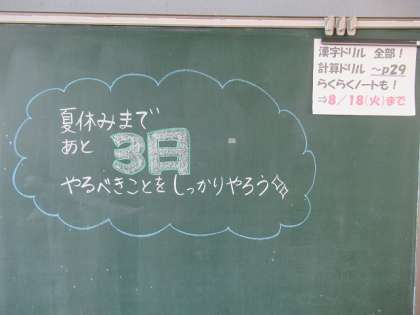 夏休みまで
あと 3日
やるべきことをしっかりやろう
漢字ドリル 全部!
計算ドリル ~p29
らくらくノートも!
⇒8/18(火)まで